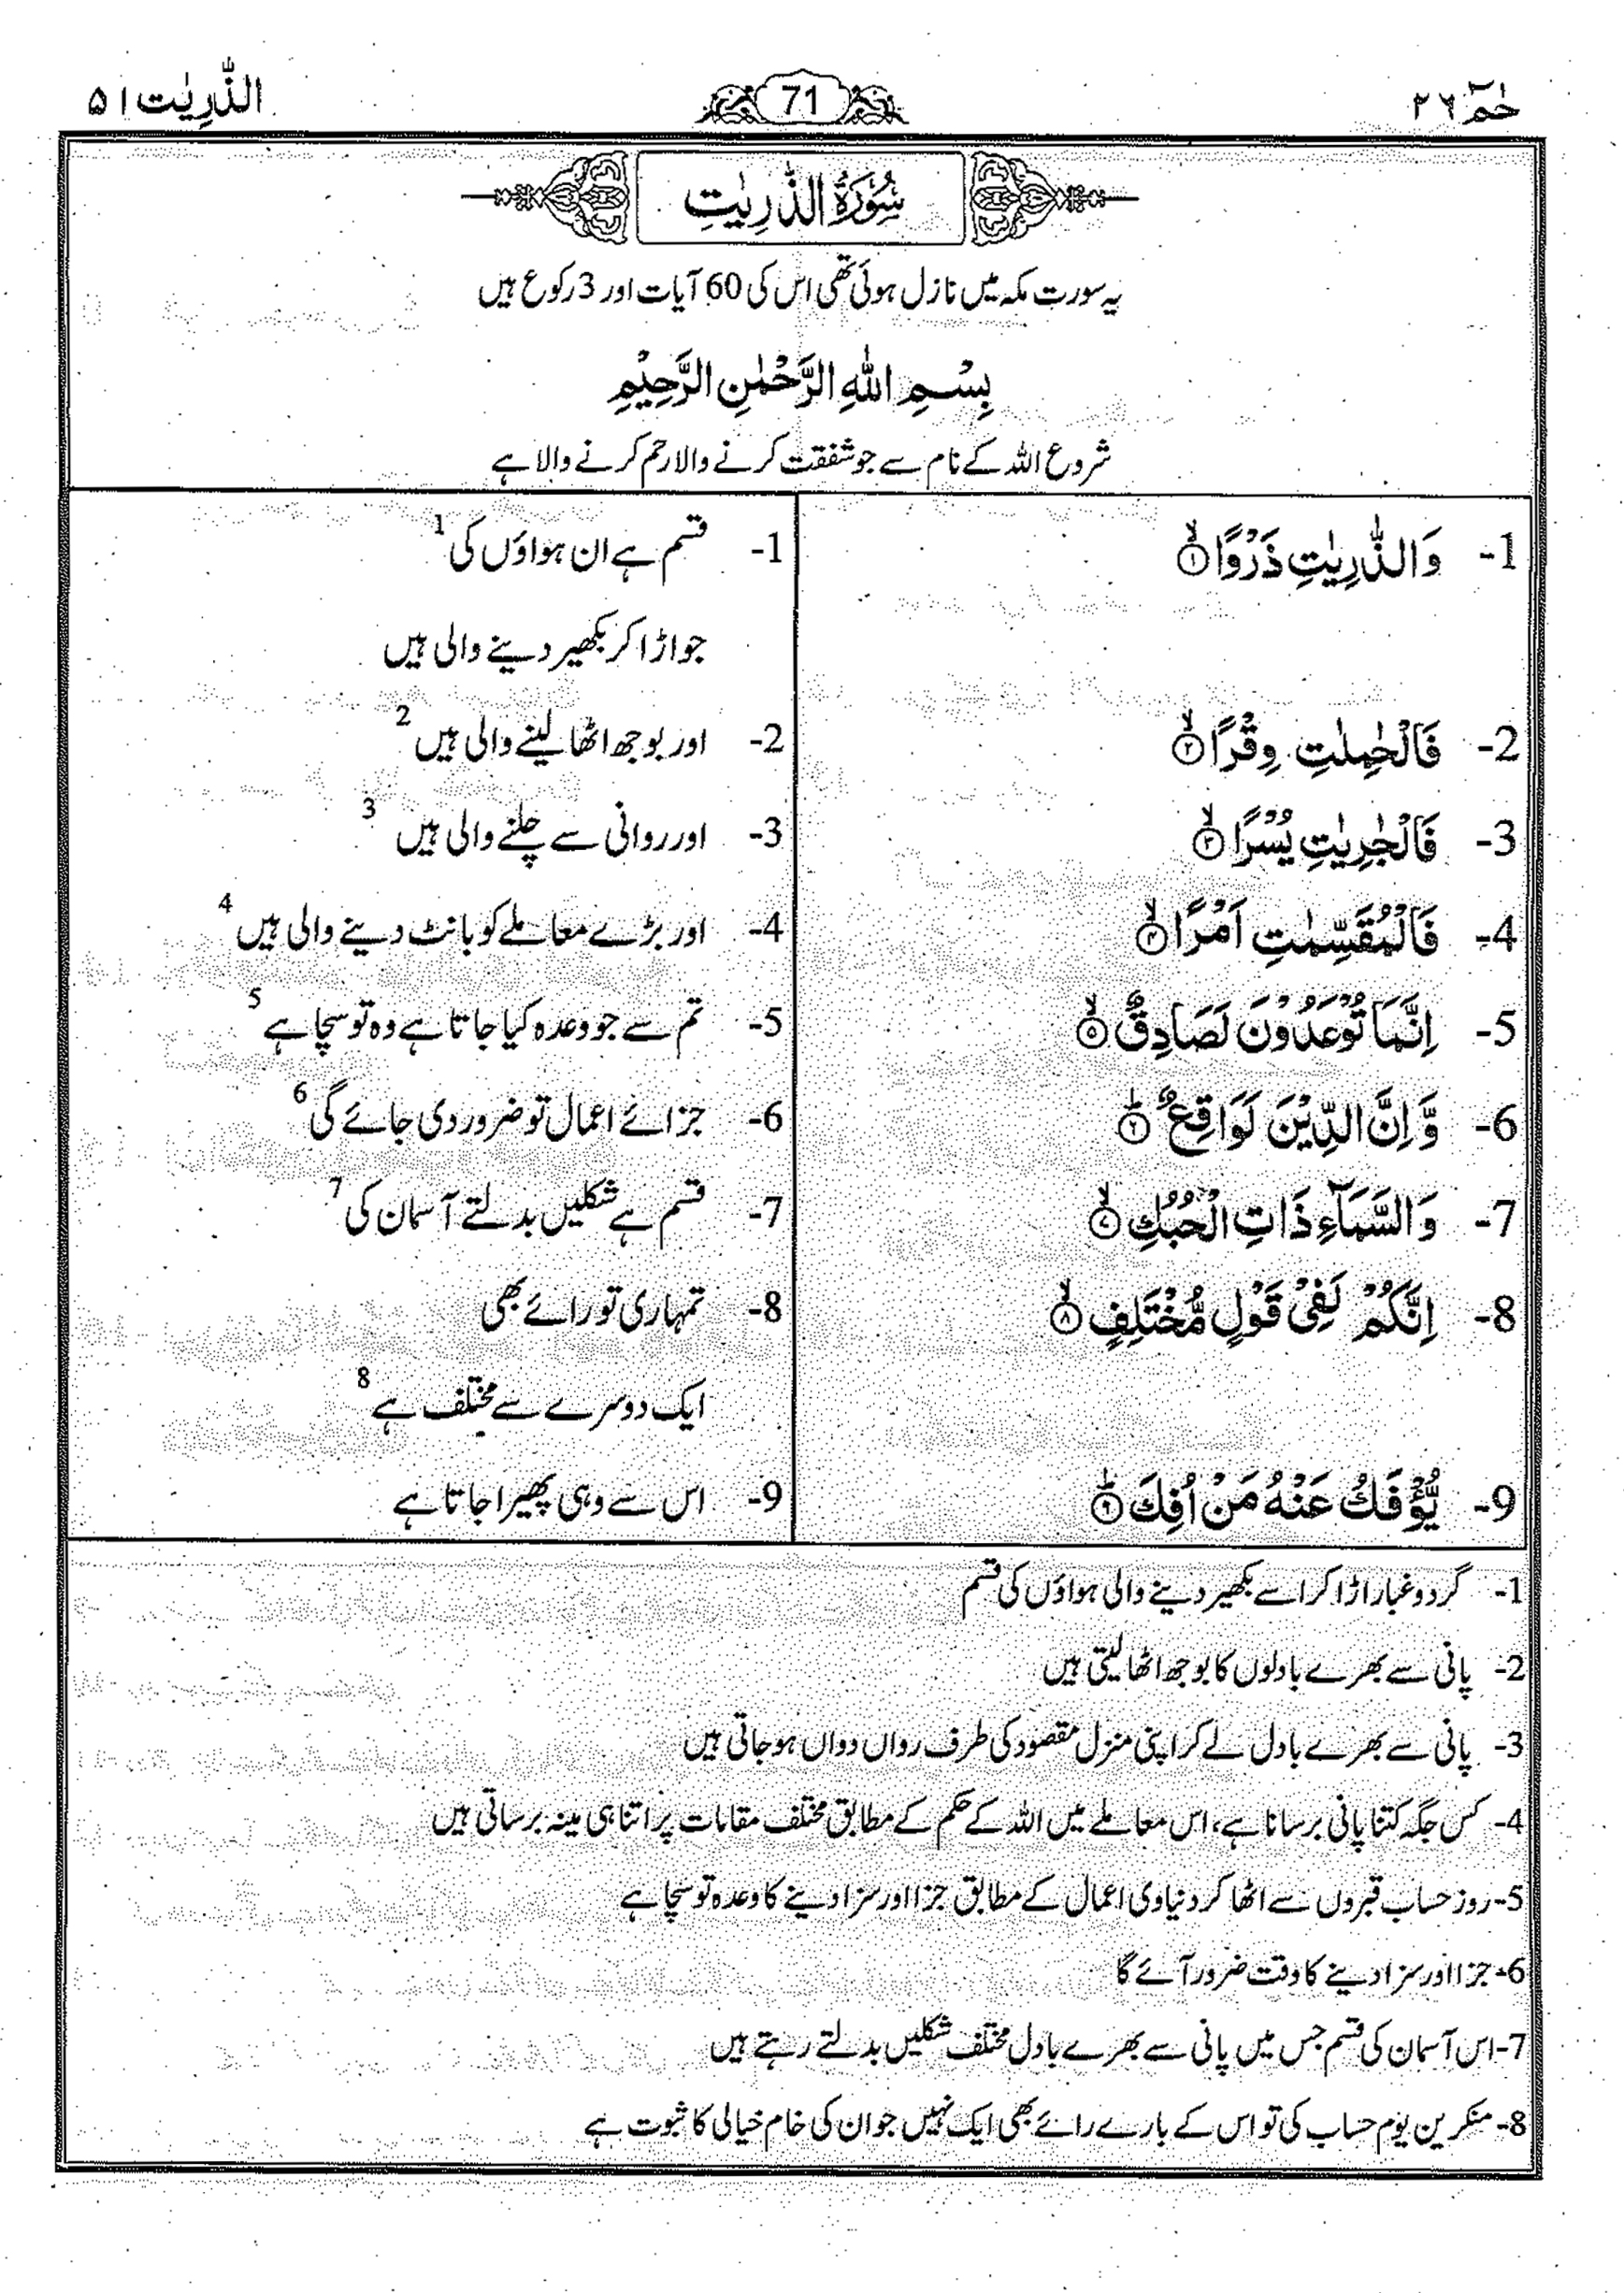 حٰمٓ ۲۶
71
الذّٰرِیٰت ۵۱
سُوْرَةُ الذّٰرِیٰتِ
یہ سورت مکہ میں نازل ہوئی تھی اس کی 60 آیات اور 3 رکوع ہیں
بِسْمِ اللّٰهِ الرَّحْمٰنِ الرَّحِیْمِ
شروع اللہ کے نام سے جو شفقت کرنے والا رحم کرنے والا ہے
1- وَالذّٰرِیٰتِ ذَرْوًا ۙ﴿۱﴾
1- قسم ہے ان ہواؤں کی 1
جو اڑا کر بکھیر دینے والی ہیں
2- فَالْحٰمِلٰتِ وِقْرًا ۙ﴿۲﴾
2- اور بوجھ اٹھا لینے والی ہیں 2
3- فَالْجٰرِیٰتِ یُسْرًا ۙ﴿۳﴾
3- اور روانی سے چلنے والی ہیں 3
4- فَالْمُقَسِّمٰتِ اَمْرًا ۙ﴿۴﴾
4- اور بڑے معاملے کو بانٹ دینے والی ہیں 4
5- اِنَّمَا تُوْعَدُوْنَ لَصَادِقٌ ۙ﴿۵﴾
5- تم سے جو وعدہ کیا جاتا ہے وہ تو سچا ہے 5
6- وَّ اِنَّ الدِّیْنَ لَوَاقِعٌ ؕ﴿۶﴾
6- جزائے اعمال تو ضرور دی جائے گی 6
7- وَالسَّمَآءِ ذَاتِ الْحُبُكِ ۙ﴿۷﴾
7- قسم ہے شکلیں بدلتے آسمان کی 7
8- اِنَّكُمْ لَفِیْ قَوْلٍ مُّخْتَلِفٍ ۙ﴿۸﴾
8- تمہاری تو رائے بھی
ایک دوسرے سے مختلف ہے 8
9- یُّؤْفَكُ عَنْهُ مَنْ اُفِكَ ؕ﴿۹﴾
9- اس سے وہی پھیرا جاتا ہے
1- گرد و غبار اڑا کر اسے بکھیر دینے والی ہواؤں کی قسم
2- پانی سے بھرے بادلوں کا بوجھ اٹھا لیتی ہیں
3- پانی سے بھرے بادل لے کر اپنی منزل مقصود کی طرف رواں دواں ہو جاتی ہیں
4- کس جگہ کتنا پانی برسانا ہے، اس معاملے میں اللہ کے حکم کے مطابق مختلف مقامات پر اتنا ہی مینہ برساتی ہیں
5- روز حساب قبروں سے اٹھا کر دنیاوی اعمال کے مطابق جزا اور سزا دینے کا وعدہ تو سچا ہے
6- جزا اور سزا دینے کا وقت ضرور آئے گا
7- اس آسمان کی قسم جس میں پانی سے بھرے بادل مختلف شکلیں بدلتے رہتے ہیں
8- منکرین یوم حساب کی تو اس کے بارے رائے بھی ایک نہیں جو ان کی خام خیالی کا ثبوت ہے